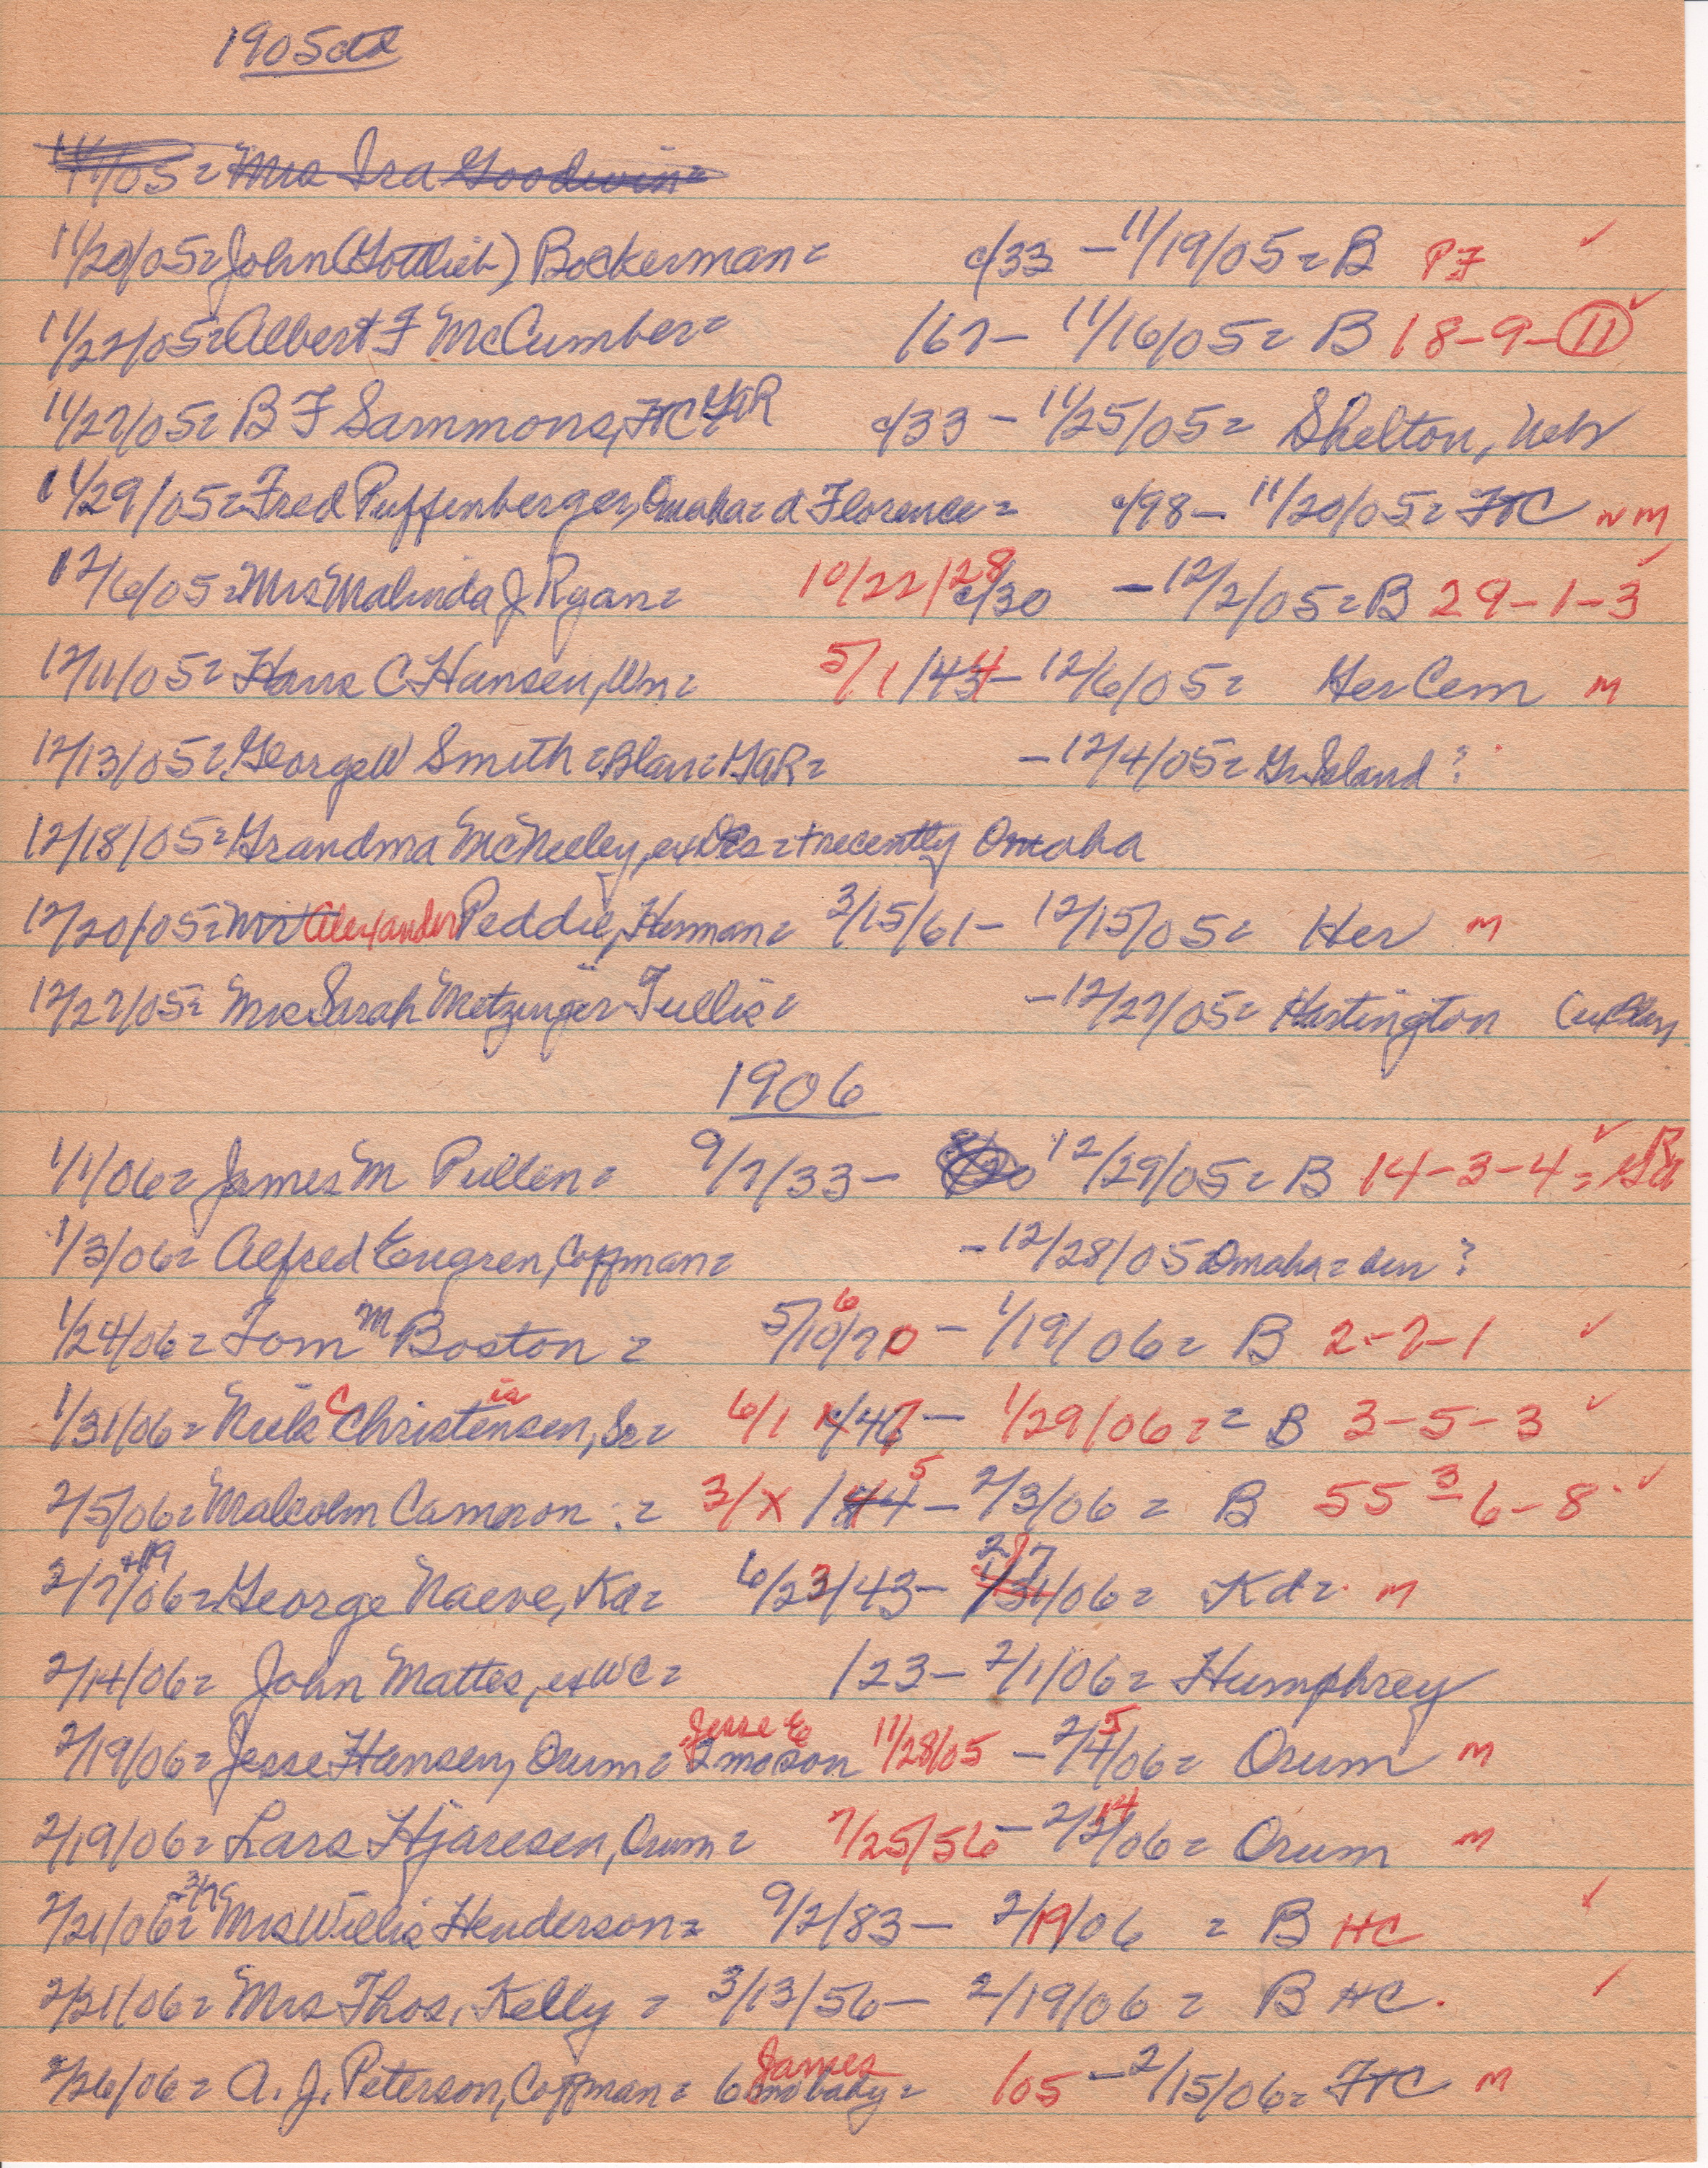 1905ctd
11/1/05= Mrs Ira Goodwin=
11/20/05= John (Gottlieb) Bockerman= c/33 - 11/19/05= B PF ✓
11/22/05= Albert F McCumber= /67- 11/16/05= B 18-9-11 ✓
11/27/05= B F Sammons, FC GAR c/33 - 11/25/05= Shelton, Neb
11/29/05= Fred Puffenberger, Omaha= d Florence= c/98- 11/20/05= FC NM
12/6/05= Mrs Malinda J Ryan= 10/22/28 c/30 - 12/2/05= B 29-1-3 ✓
12/11/05= Hans C Hansen, Wn= 5/1/434- 12/6/05= Her Cem M
12/13/05= George W Smith= Blair= GAR= -12/4/05= Gr Island ?
12/18/05= Grandma McNeeley, ex = + recently Omaha
12/20/05= Mr Alexander Peddie, Herman= 3/15/61- 12/15/05= Her M
12/27/05= Mrs Sarah Metzinger Tullis= -12/27/05= Hartington
1906
1/1/06= James M Pullen= 9/7/33- 8/20 12/29/05= B 14-3-4= GAR ✓
1/3/06= Alfred Engren, Coffman= -12/28/05 Omaha= bur ?
1/24/06= Tom M Boston= 5/10/70 6 - 1/19/06= B 2-7-1 ✓
1/31/06= Niels C Christensen, Sr= ia 6/1 1/467- 1/29/06== B 3-5-3 ✓
2/5/06= Malcolm Cameron := 3/x /44 5 - 2/3/06= B 55 3-6-8 ✓
2/7/06= +19 George Naeve, Kd= 6/23/43- 1/31/06= 2/7 Kd= M
2/14/06= John Mattes, exWC= /23- 2/1/06= Humphrey
2/19/06= Jesse Hansen, Orum= Jesse E 2 mo son 11/28/05 - 2/4/06= 5 Orum M
2/19/06= Lars Hjaresen, Orum= 7/25/56- 2/2/06= 14 Orum M
2/21/06= 3/7 Mrs Willis Henderson= 9/2/83- 2/19/06 = B HC ✓
2/21/06= Mrs Thos. Kelly= 3/13/56- 2/19/06= B HC. ✓
2/26/06= A. J. Peterson, Coffman= 6 mo baby= James /05 - 2/15/06= FC M